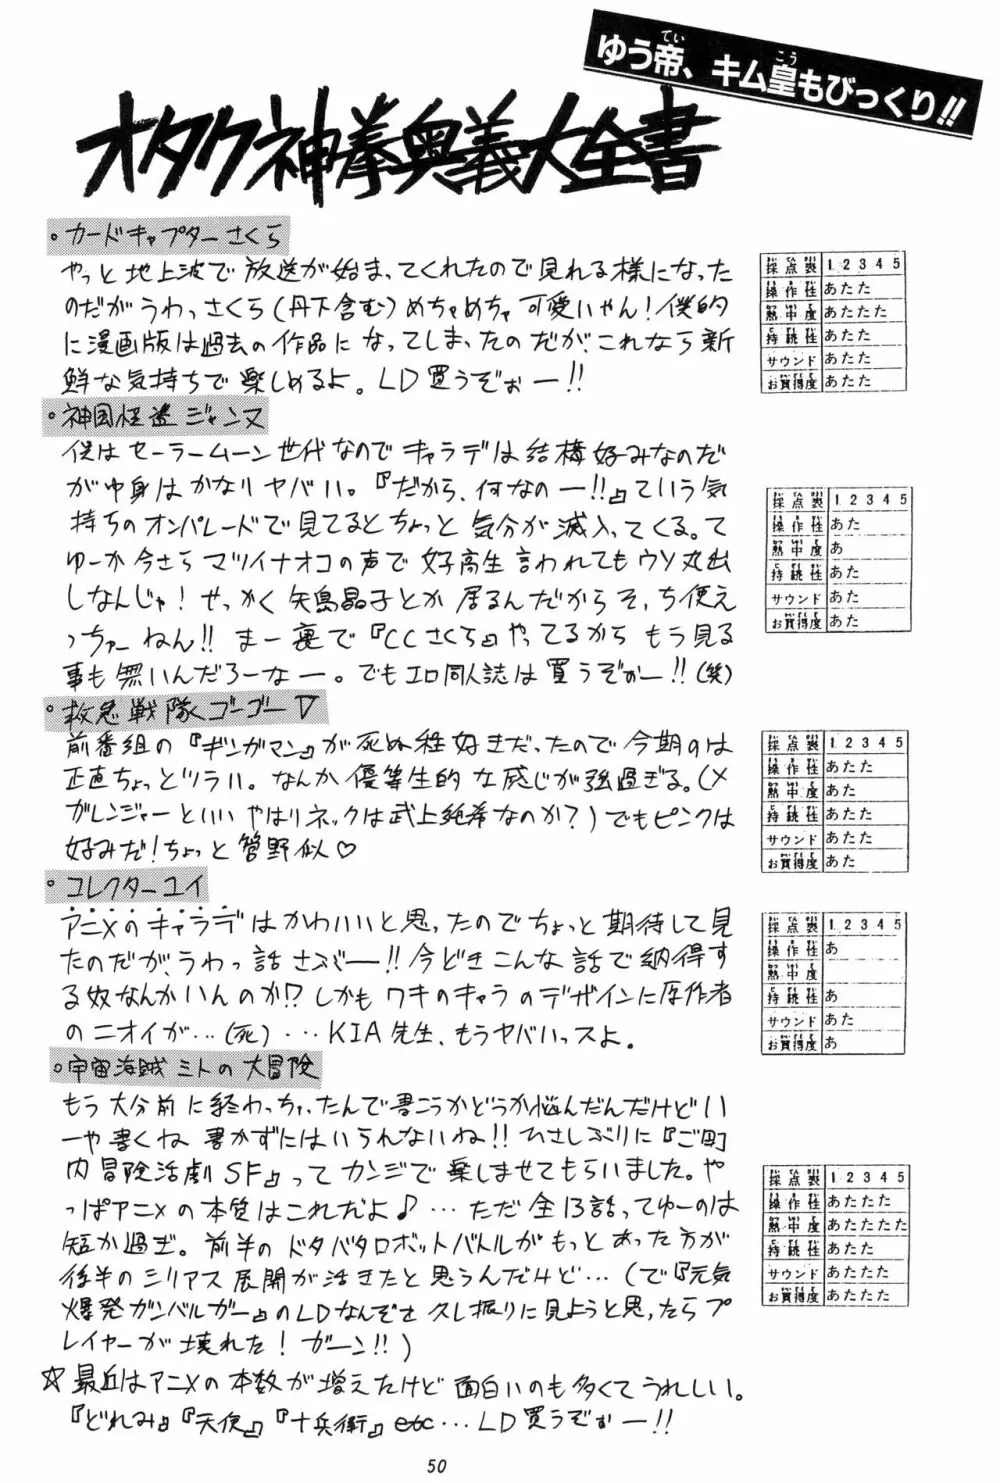 ゆう帝、キム皇もびっくり!!
オタク神拳奥義大全書
。カードキャプターさくら
やっと地上波で放送が始まってくれたので見れる様になった
のだがうわっさくら(丹下含む)めちゃめちゃ可愛いやん!僕的
に漫画版は過去の作品になってしまったのだが、これなら新
鮮な気持ちで楽しめるよ。LD買うぞぉー!!
採点表 1 2 3 4 5
操作性 あたた
熱中度 あたたた
持続性 あたた
サウンド あたた
お買得度 あたた
。神風怪盗ジャンヌ
僕はセーラームーン世代なのでキャラデは結構好みなのだ
が中身はかなりヤバい。『だから、何なのー!!』ていう気
持ちのオンパレードで見てるとちょっと気分が滅入ってくる。て
ゆーか今さらマツイナオコの声で女子高生言われてもウソ丸出
しなんじゃ!せっかく矢島晶子とか居るんだからそっち使え
っちゃーねん!!まー裏で『CCさくら』やってるからもう見る
事も無いんだろーなー。でもエロ同人誌は買うぞぉー!!(笑)
採点表 1 2 3 4 5
操作性 あた
熱中度 あ
持続性 あた
サウンド あた
お買得度 あた
。救急戦隊ゴーゴーV
前番組の『ギンガマン』が死ぬ程好きだったので今期のは
正直ちょっとツラい。なんか優等生的な感じが強過ぎる。(メ
ガレンジャーといいやはりネックは武上純希なのか?)でもピンクは
好みだ!ちょっと菅野似♡
採点表 1 2 3 4 5
操作性 あたた
熱中度 あた
持続性 あたた
サウンド あたた
お買得度 あた
。コレクターユイ
アニメのキャラデはかわいいと思ったのでちょっと期待して見
たのだが、うわっ話さぶー!!今どきこんな話で納得す
る奴なんかいんのか!?しかもワキのキャラのデザインに原作者
のニオイが…(死)…KIA先生、もうヤバいっスよ。
採点表 1 2 3 4 5
操作性 あ
熱中度
持続性 あ
サウンド あた
お買得度 あ
。宇宙海賊ミトの大冒険
もう大分前に終わっちゃったんで書こうかどうか悩んだんだけどい
ーや書くね書かずにはいられないね!!ひさしぶりに『ご町
内冒険活劇SF』ってカンジで楽しませてもらいました。や
っぱアニメの本質はこれだよ♪…ただ全13話ってゆーのは
短か過ぎ。前半のドタバタロボットバトルがもっとあった方が
後半のシリアス展開が活きたと思うんだけど…(で『元気
爆発ガンバルガー』のLDなんぞを久し振りに見ようと思ったらプ
レイヤーが壊れた!ガーン!!)
採点表 1 2 3 4 5
操作性 あたたた
熱中度 あたたたた
持続性 あたた
サウンド あたたた
お買得度 あたたた
☆最近はアニメの本数が増えたけど面白いのも多くてうれしい。
『どれみ』『天使』『十兵衛』etc…LD買うぞぉー!!
50